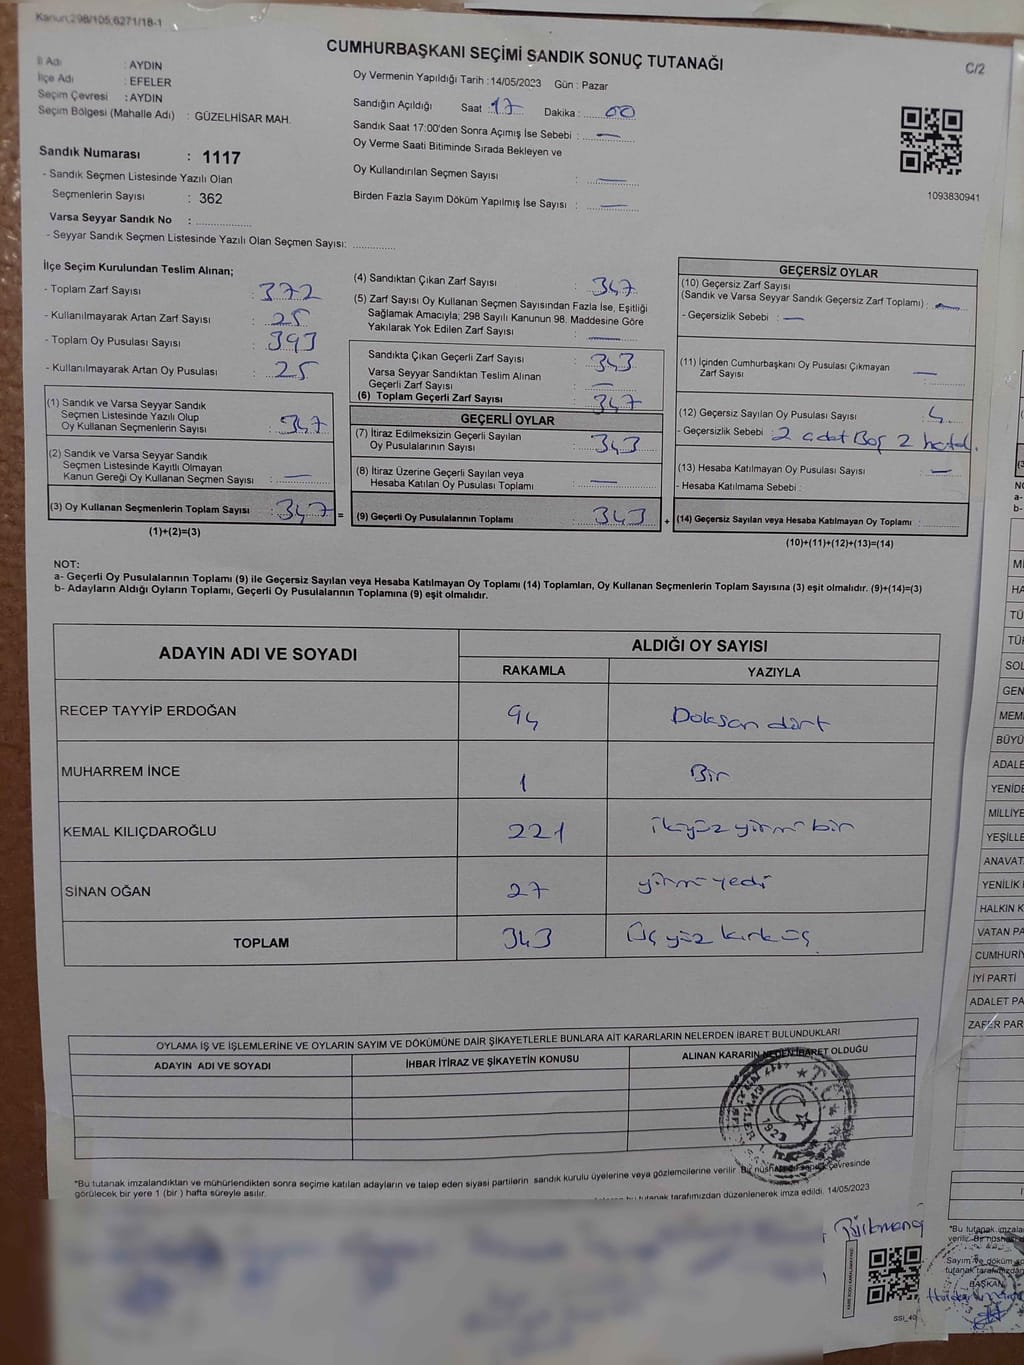 Kanun,298/105,6271/18-1
CUMHURBAŞKANI SEÇİMİ SANDIK SONUÇ TUTANAĞI
C/2
İl Adı : AYDIN
İlçe Adı : EFELER
Seçim Çevresi : AYDIN
Seçim Bölgesi (Mahalle Adı) : GÜZELHİSAR MAH.
Oy Vermenin Yapıldığı Tarih : 14/05/2023 Gün : Pazar
Sandığın Açıldığı Saat : 17 Dakika : 00
Sandık Saat 17:00'den Sonra Açımış İse Sebebi : —
Oy Verme Saati Bitiminde Sırada Bekleyen ve
Oy Kullandırılan Seçmen Sayısı : —
Birden Fazla Sayım Döküm Yapılmış İse Sayısı : —
1093830941
Sandık Numarası : 1117
- Sandık Seçmen Listesinde Yazılı Olan
Seçmenlerin Sayısı : 362
Varsa Seyyar Sandık No :
- Seyyar Sandık Seçmen Listesinde Yazılı Olan Seçmen Sayısı:
İlçe Seçim Kurulundan Teslim Alınan;
- Toplam Zarf Sayısı : 372
- Kullanılmayarak Artan Zarf Sayısı : 25
- Toplam Oy Pusulası Sayısı : 393
- Kullanılmayarak Artan Oy Pusulası : 25
(1) Sandık ve Varsa Seyyar Sandık
Seçmen Listesinde Yazılı Olup
Oy Kullanan Seçmenlerin Sayısı : 347
(2) Sandık ve Varsa Seyyar Sandık
Seçmen Listesinde Kayıtlı Olmayan
Kanun Gereği Oy Kullanan Seçmen Sayısı : —
(3) Oy Kullanan Seçmenlerin Toplam Sayısı : 347 =
(1)+(2)=(3)
(4) Sandıktan Çıkan Zarf Sayısı : 347
(5) Zarf Sayısı Oy Kullanan Seçmen Sayısından Fazla İse, Eşitliği
Sağlamak Amacıyla; 298 Sayılı Kanunun 98. Maddesine Göre
Yakılarak Yok Edilen Zarf Sayısı : —
Sandıkta Çıkan Geçerli Zarf Sayısı : 343
Varsa Seyyar Sandıktan Teslim Alınan
Geçerli Zarf Sayısı : —
(6) Toplam Geçerli Zarf Sayısı : 347
GEÇERLİ OYLAR
(7) İtiraz Edilmeksizin Geçerli Sayılan
Oy Pusulalarının Sayısı : 343
(8) İtiraz Üzerine Geçerli Sayılan veya
Hesaba Katılan Oy Pusulası Toplamı : —
(9) Geçerli Oy Pusulalarının Toplamı : 343 +
GEÇERSİZ OYLAR
(10) Geçersiz Zarf Sayısı
(Sandık ve Varsa Seyyar Sandık Geçersiz Zarf Toplamı) : —
- Geçersizlik Sebebi : —
(11) İçinden Cumhurbaşkanı Oy Pusulası Çıkmayan
Zarf Sayısı : —
(12) Geçersiz Sayılan Oy Pusulası Sayısı : 4
- Geçersizlik Sebebi : 2 adet Boş 2 hatal.
(13) Hesaba Katılmayan Oy Pusulası Sayısı : —
- Hesaba Katılmama Sebebi :
(14) Geçersiz Sayılan veya Hesaba Katılmayan Oy Toplamı :
(10)+(11)+(12)+(13)=(14)
NOT:
a- Geçerli Oy Pusulalarının Toplamı (9) ile Geçersiz Sayılan veya Hesaba Katılmayan Oy Toplamı (14) Toplamları, Oy Kullanan Seçmenlerin Toplam Sayısına (3) eşit olmalıdır. (9)+(14)=(3)
b- Adayların Aldığı Oyların Toplamı, Geçerli Oy Pusulalarının Toplamına (9) eşit olmalıdır.
ADAYIN ADI VE SOYADI
ALDIĞI OY SAYISI
RAKAMLA YAZIYLA
RECEP TAYYİP ERDOĞAN 94 Doksan dört
MUHARREM İNCE 1 Bir
KEMAL KILIÇDAROĞLU 221 ikiyüz yirmi bir
SİNAN OĞAN 27 yirmi yedi
TOPLAM 343 Üç yüz kırk üç
OYLAMA İŞ VE İŞLEMLERİNE VE OYLARIN SAYIM VE DÖKÜMÜNE DAİR ŞİKAYETLERLE BUNLARA AİT KARARLARIN NELERDEN İBARET BULUNDUKLARI
ADAYIN ADI VE SOYADI İHBAR İTİRAZ VE ŞİKAYETİN KONUSU ALINAN KARARIN NEDEN İBARET OLDUĞU
*Bu tutanak imzalandıktan ve mühürlendikten sonra seçime katılan adayların ve talep eden siyasi partilerin sandık kurulu üyelerine veya gözlemcilerine verilir. Bir nüshası da sandık çevresinde
görülecek bir yere 1 (bir ) hafta süreyle asılır.
bu tutanak tarafımızdan düzenlenerek imza edildi. 14/05/2023
HA
SOL
GEN
BÜYÜ
ADALE
YENİDE
MİLLİYE
YEŞİLLE
ANAVAT
YENİLİK
HALKIN K
VATAN PA
CUMHURİY
İYİ PARTİ
ADALET PA
ZAFER PAR
*Bu tutanak imzala
Sayım ve döküm
tutanak tarafımızdan
BAŞKAN